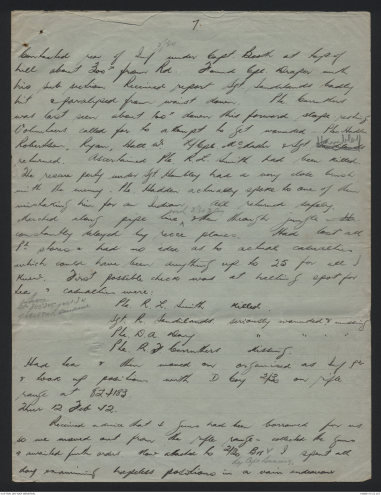 7.
Contacted rear of Inf under Capt Booth at top of
hill about 700x from Rd. Found Cpl Draper with
his sub section. Received report Sgt Sandilands badly
hit & paralysed from waist down. Pte Carruthers
was last seen about 100x down this forward slope
Volunteers called for to attempt to get wounded. Pte Hadden
Robertson, Lyon, Hall & Sgt
returned. Ascertained Pte R.L. Smith had been killed.
The rescue party under Sgt had a very close brush
with the enemy. Pte Hadden actually spoke to one of them
mistaking him for an Indian. All returned safely
along pipe line, then through jungle
constantly delayed by recce planes. Had lost all
Pl stores & had no idea as to actual casualties
which could have been anything up to 25 for all I
knew. First possible check was at halting spot for
tea, & casualties were:
Pte R. L. Smith killed.
Sgt R. Sandilands seriously wounded & missing
Pte D.A. " " "
Pte R. J Carruthers Missing.
Had tea & then moved on organised as Inf Pl
& took up position with D Coy on rifle
range at 824183
Thur 12 Feb 42.
Received advice that guns had been borrowed for us
so we moved out from the rifle range - collected the guns
& awaited further orders. Was attached to Bn & I spent all
day examining hopeless positions in a vain endeavour